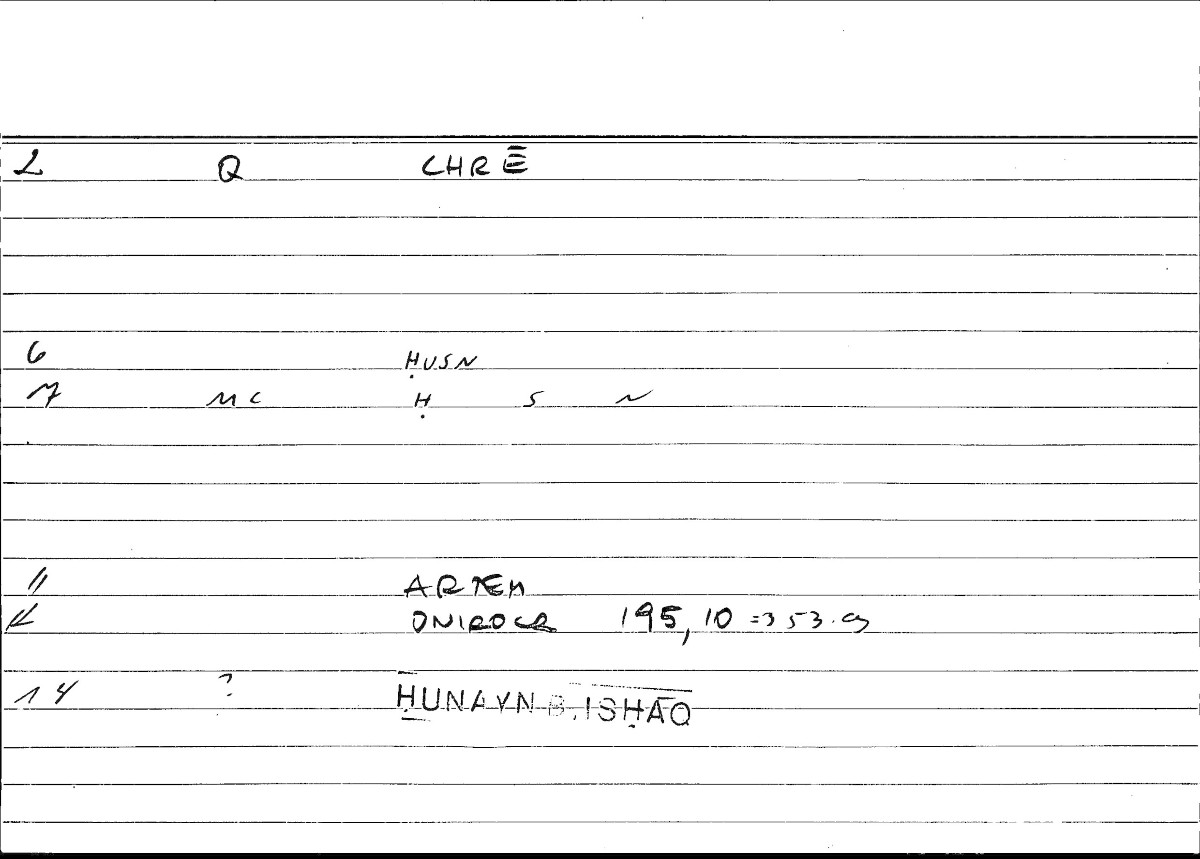 2 Q CHRĒ
6 ḤUSN
7 MC Ḥ S N
11 ARTEM
12 ONIROCR 195,10 = 353.9
14 ? ḤUNAYN B. ISḤĀQ